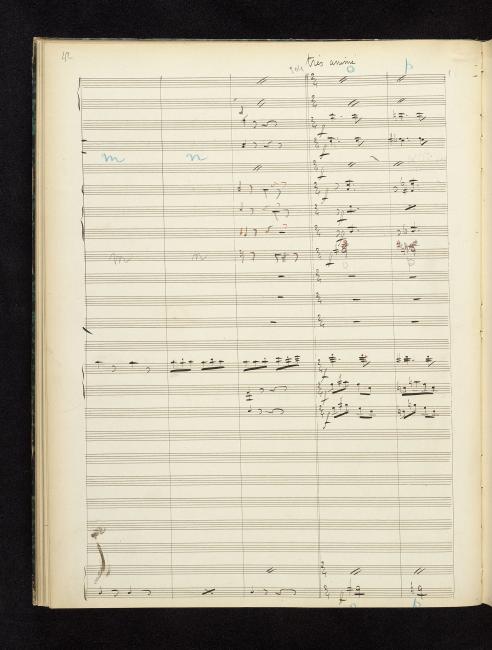 42
très animé
o p
m n
m n
o p
o p